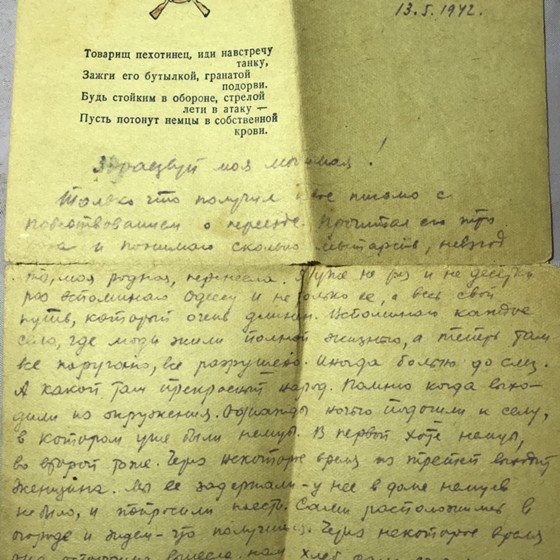 13.5.1942.
Товарищ пехотинец, иди навстречу
танку,
Зажги его бутылкой, гранатой
подорви.
Будь стойким в обороне, стрелой
лети в атаку —
Пусть потонут немцы в собственной
крови.
Здравствуй моя мамочка!
Только что получил твое письмо с
повествованием о переезде. Почитал его
и понимаю сколько мытарств, невзгод
ты, моя родная, перенесла. Я уже не раз и не десять
раз вспоминаю Одессу и не только ее, а весь свой
путь, который очень длинен. Вспоминаю каждое
село, где люди жили полной жизнью, а теперь там
все поругано, все разрушено. Иногда больно до слез.
А какой там прекрасный народ. Помню когда выхо-
дили из окружения. Однажды ночью подошли к селу,
в котором уже были немцы. В первой хате немцы,
во второй тоже. Через некоторое время из третьей выходит
женщина. Мы ее задержали - у нее в доме немцев
не было, и попросили поесть. Сами расположились в
огороде и ждем - что получится. Через некоторое время
она вынесла нам хлеб